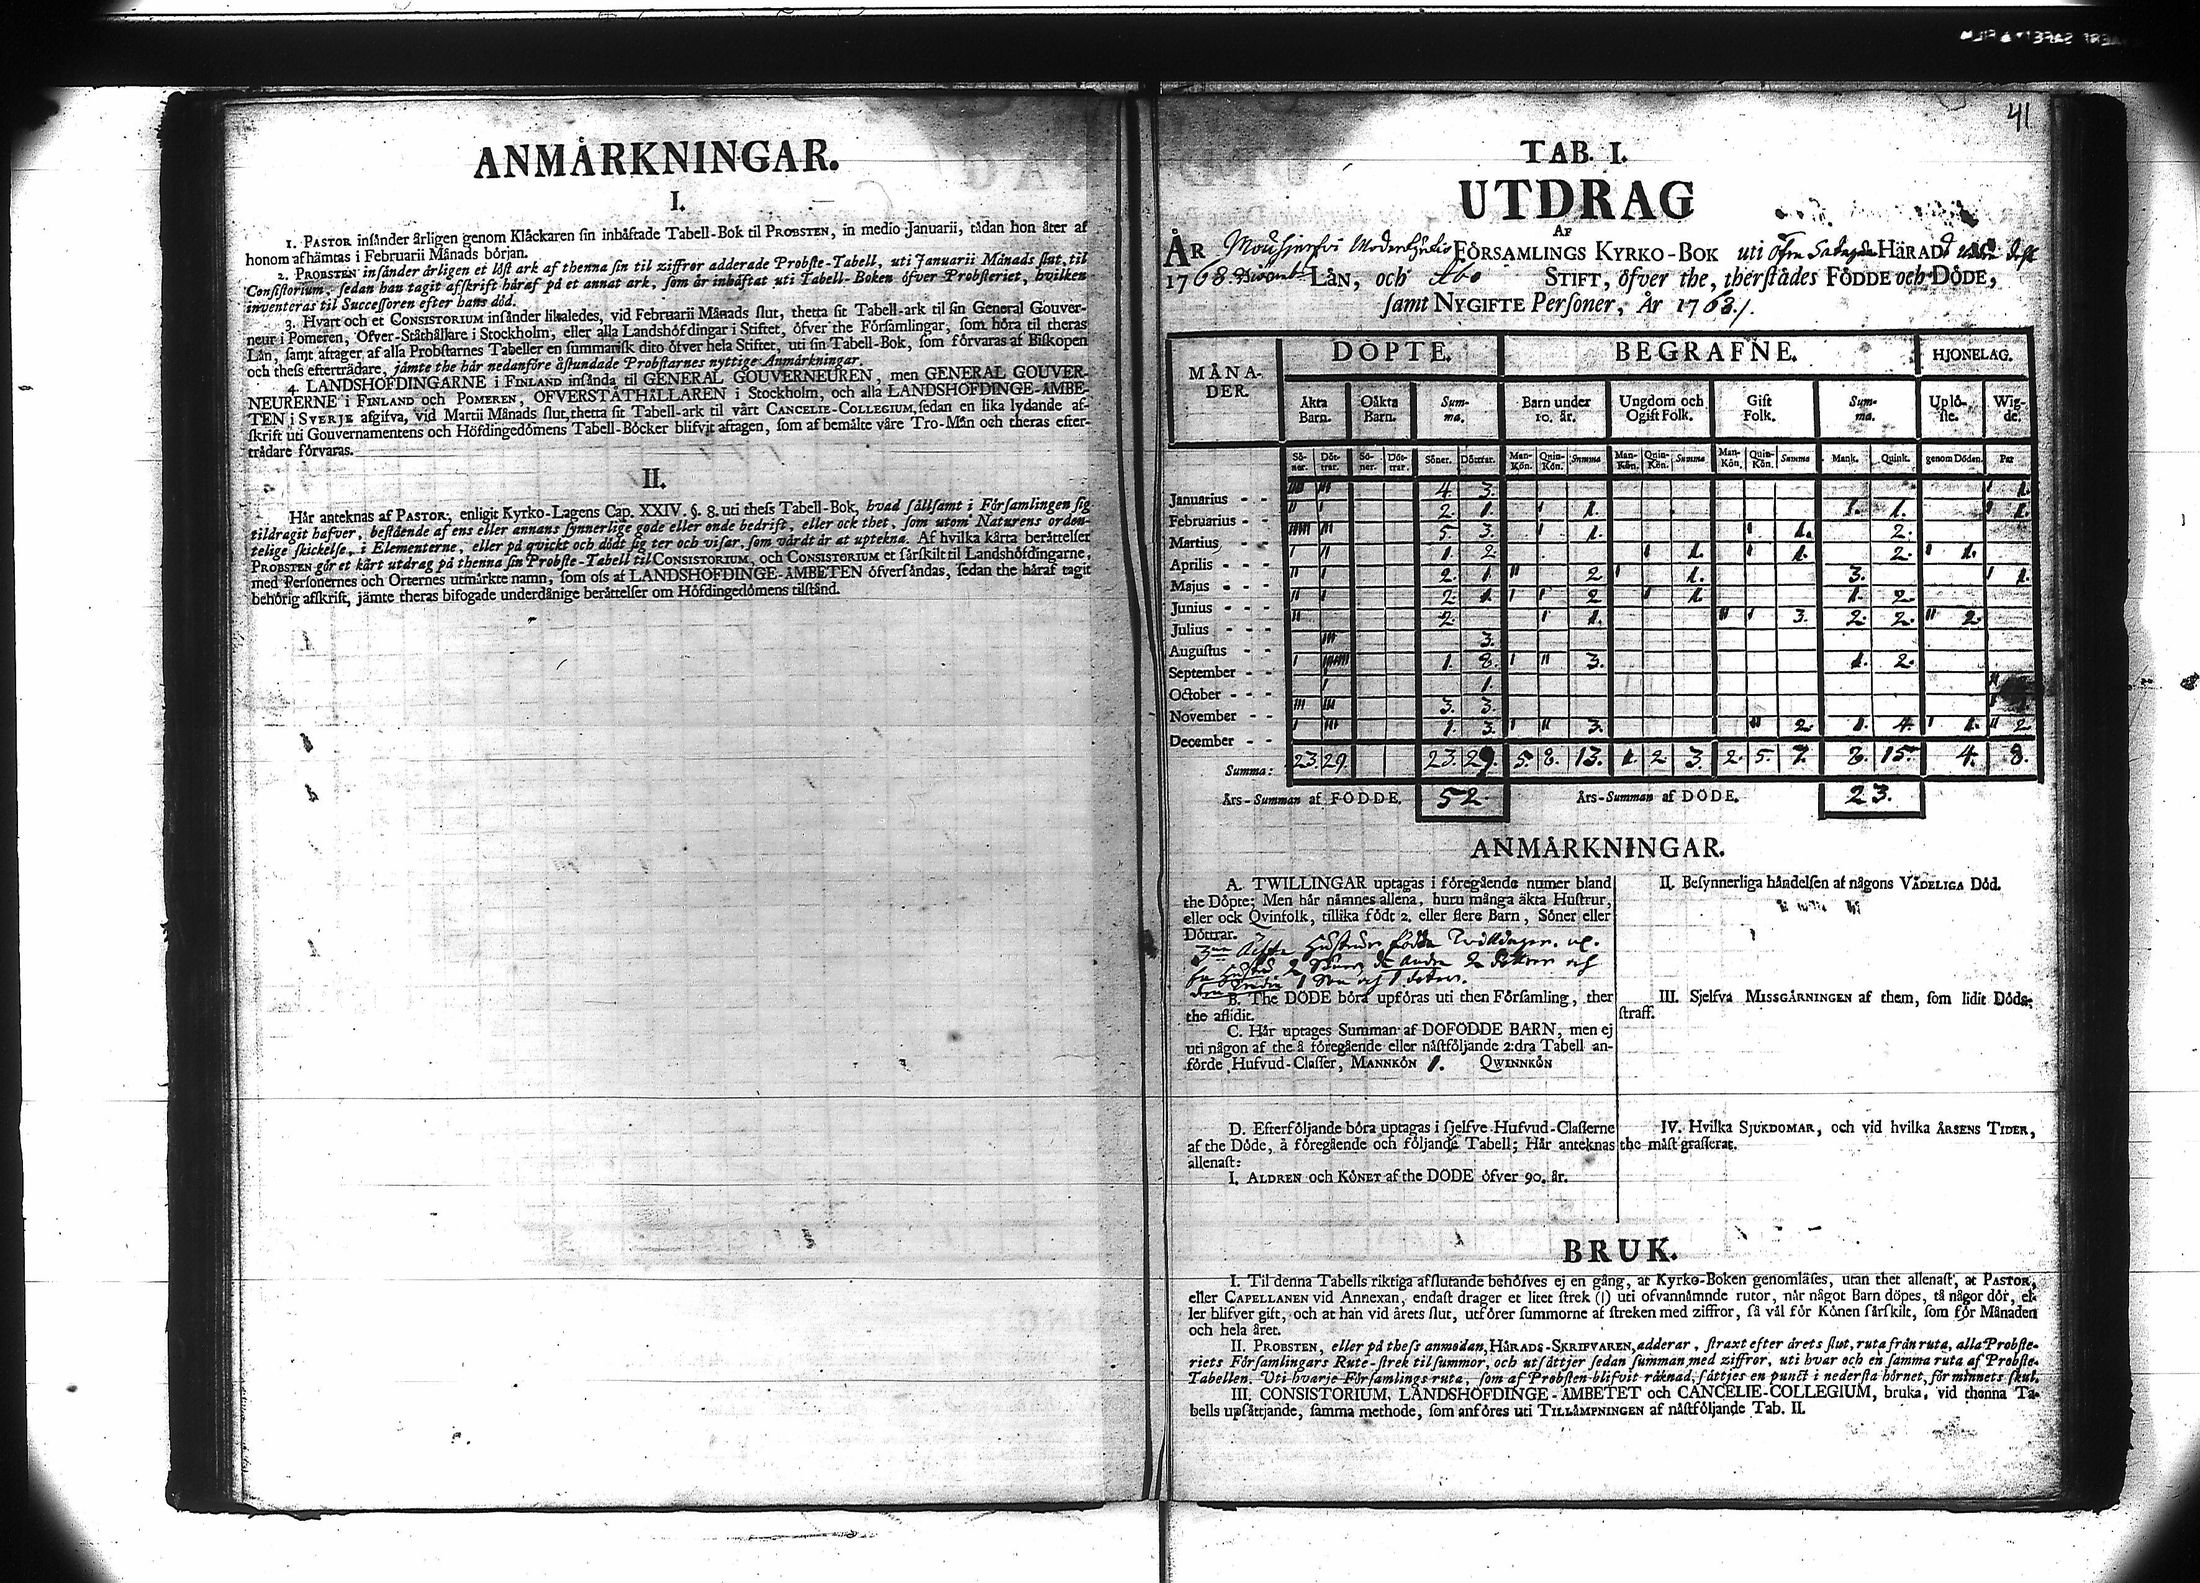 ANMÅRKNINGAR.
I.
1. PASTOR insånder årligen genom Klåckaren sin inhåftade Tabell-Bok til PROBSTEN, in medio Januarii, tådan hon åter af
honom afhåmtas i Februarii Månads början.
2. PROBSTEN insånder årligen et lőst ark af thenna sin til ziffror adderade Probste-Tabell, uti Januarii Månads slut, til
Consistorium, sedan han tagit afskrift håraf på et annat ark, som år inhåftat uti Tabell-Boken öfver Probsteriet, hvilken
inventeras til Successoren efter hans död.
3. Hvart och et CONSISTORIUM insånder likaledes, vid Februarii Månads slut, thetta sit Tabell-ark til sin General Gouver-
neur i Pomeren, Öfver-Ståthållare i Stockholm, eller alla Landshöfdingar i Stiftet, öfver the Församlingar, som höra til theras
Lån, samt aftager af alla Probstarnes Tabeller en summarisk dito öfver hela Stiftet, uti sin Tabell-Bok, som förvaras af Biskopen
och thess efterträdare, jämte the hår nedanföre åstundade Probstarnes nyttige Anmårkningar.
4. LANDSHÖFDINGARNE i FINLAND insånda til GENERAL GOUVERNEUREN, men GENERAL GOUVER-
NEURERNE i FINLAND och POMEREN, ÖFVERSTÅTHÅLLAREN i Stockholm, och alla LANDSHÖFDINGE-ÅMBE-
TEN i SVERJE afgifva, vid Martii Månads slut, thetta sit Tabell-ark til vårt CANCELIE-COLLEGIUM, sedan en lika lydande af-
skrift uti Gouvernamentens och Höfdingedömens Tabell-Böcker blifvit aftagen, som af bemålte våre Tro-Mån och theras efter-
trådare förvaras.
II.
Hår anteknas af PASTOR, enligit Kyrko-Lagens Cap. XXIV. §. 8. uti thess Tabell-Bok, hvad sållsamt i Församlingen sig
tildragit hafver, bestående af ens eller annans synnerlige gode eller onde bedrift, eller ock thet, som utom Naturens orden-
telige skickelse, i Elementerne, eller på qvickt och dödt sig ter och visar, som vårdt år at uptekna. Af hvilka kårta beråttelser
PROBSTEN gör et kårt utdrag på thenna sin Probste-Tabell til CONSISTORIUM, och CONSISTORIUM et sårskilt til Landshöfdingarne,
med Personernes och Orternes utmårkte namn, som oss af LANDSHÖFDINGE-ÅMBETEN öfversåndas, sedan the håraf tagit
behörig afskrift, jämte theras bifogade underdånige beråttelser om Höfdingedömens tilstånd.
41
TAB. I.
UTDRAG
AF
ÅR FÖRSAMLINGS KYRKO-BOK uti Öfre HÄRAD
1768. LÅN, och Åbo STIFT, öfver the, thérstådes FÖDDE och DÖDE,
samt NYGIFTE Personer, År 1768.
MÅNA-DER. DÖPTE. BEGRAFNE. HJONELAG.
Äkta Barn. Oåkta Barn. Sum-ma. Barn under 10. år. Ungdom och Ogift Folk. Gift Folk. Sum-ma. Uplö-ste. Wig-de.
Sö-ner. Döt-trar. Sö-ner. Döt-trar. Söner. Döttrar. Man-Kön. Quin-Kön. Summa Man-Kön. Quin-Kön. Summa Man-Kön. Quin-Kön. Summa Mank. Quink. genom Döden. Par
Januarius - - 4. 3. 1.
Februarius - - 2. 1. 1. 1. 1. 1.
Martius - - 5. 3. 1. 1. 2.
Aprilis - - 1. 2. 1. 1. 2. 1.
Majus - - 2. 1. 2 1. 3. 1.
Junius - - 2. 1. 2 1. 1. 2.
Julius - - 2. 1. 3. 2. 2. 2.
Augustus - - 3.
September - - 1. 8. 3. 1. 2.
October - - 1.
November - - 3. 3.
December - - 1. 3. 3. 2. 1. 4. 1. 2.
Summa: 23. 29. 23. 29 5. 8. 13. 1. 2. 3. 2. 5. 7. 8. 15. 4. 8.
Års-Summan af FÖDDE. 52. Års-Summan af DÖDE. 23.
ANMÅRKNINGAR.
A. TWILLINGAR uptagas i föregående numer bland
the Döpte; Men hår nåmnes allena, huru många åkta Hustrur,
eller ock Qvinfolk, tillika födt 2. eller flere Barn, Söner eller
Döttrar.
3ne Hustrur födde Twillingar.
2 Söner, de andra 2 döttrar och
1 Son och 1 dotter.
B. The DÖDE böra upföras uti then Församling, ther
the aflidit.
C. Hår uptages Summan af DÖFÖDDE BARN, men ej
uti någon af the å föregående eller nåstföljande 2:dra Tabell an-
förde Hufvud-Classer, MANNKÖN 1. QWINNKÖN
D. Efterföljande böra uptagas i sjelfve Hufvud-Classerne
af the Döde, å föregående och följande Tabell; Hår anteknas
allenast:
I. ALDREN och KÖNET af the DÖDE öfver 90. år.
II. Besynnerliga håndelsen af någons VÅDELIGA Död.
III. Sjelfva MISSGÅRNINGEN af them, som lidit Döds-
straff.
IV. Hvilka SJUKDOMAR, och vid hvilka ÅRSENS TIDER,
the måst grasserat.
BRUK.
I. Til denna Tabells riktiga afslutande behöfves ej en gång, at Kyrko-Boken genomläses, utan thet allenast, at PASTOR,
eller CAPELLANEN vid Annexan, endast drager et litet strek (I) uti ofvannåmnde rutor, når något Barn döpes, tå någor dör, el-
ler blifver gift, och at han vid årets slut, utförer summorne af streken med ziffror, så vål för Könen sårskilt, som för Månaden
och hela året.
II. PROBSTEN, eller på thess anmodan, HÅRADS-SKRIFVAREN, adderar, straxt efter årets slut, ruta från ruta, alla Probste-
riets Församlingars Rute-strek til summor, och utsåttjer sedan summan med ziffror, uti hvar och en samma ruta af Probste-
Tabellen. Uti hvarje Församlings ruta, som af Probsten blifvit råknad, såttjes en punct i nedersta hörnet, för minnets skul.
III. CONSISTORIUM, LANDSHÖFDINGE-ÅMBETET och CANCELIE-COLLEGIUM, bruka, vid thenna Ta-
bells upsåttjande, samma methode, som anföres uti TILLÅMPNINGEN af nåstföljande Tab. II.